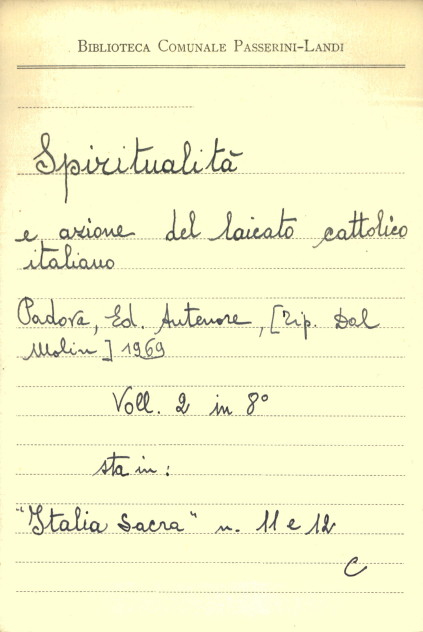 BIBLIOTECA COMUNALE PASSERINI-LANDI
Spiritualità
e azione del laicato cattolico
italiano
Padova, Ed. Antenore, [Tip. Dal
Molin] 1969
Voll. 2 in 8°
sta in:
"Italia Sacra" n. 11 e 12
C